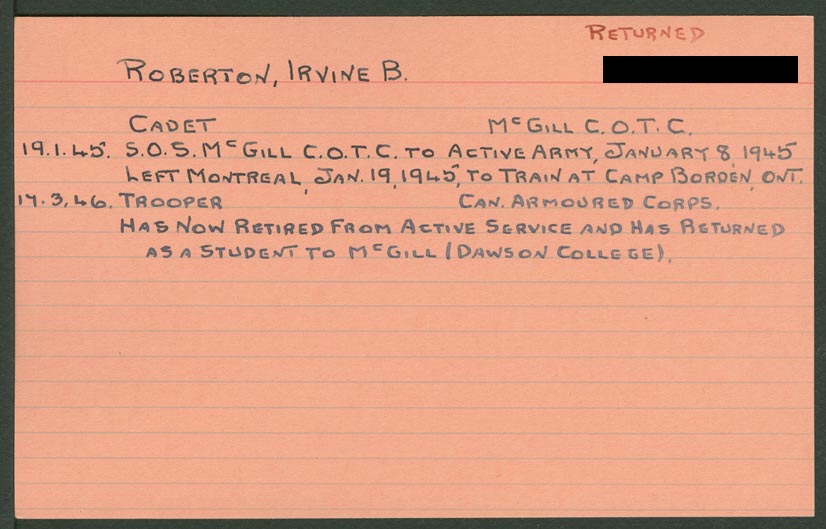 RETURNED
ROBERTON, IRVINE B.
CADET McGILL C.O.T.C.
19.1.45. S.O.S. McGILL C.O.T.C. TO ACTIVE ARMY, JANUARY 8, 1945
LEFT MONTREAL, JAN. 19, 1945, TO TRAIN AT CAMP BORDEN, ONT.
17.3.46. TROOPER CAN. ARMOURED CORPS.
HAS NOW RETIRED FROM ACTIVE SERVICE AND HAS RETURNED
AS A STUDENT TO McGILL (DAWSON COLLEGE).